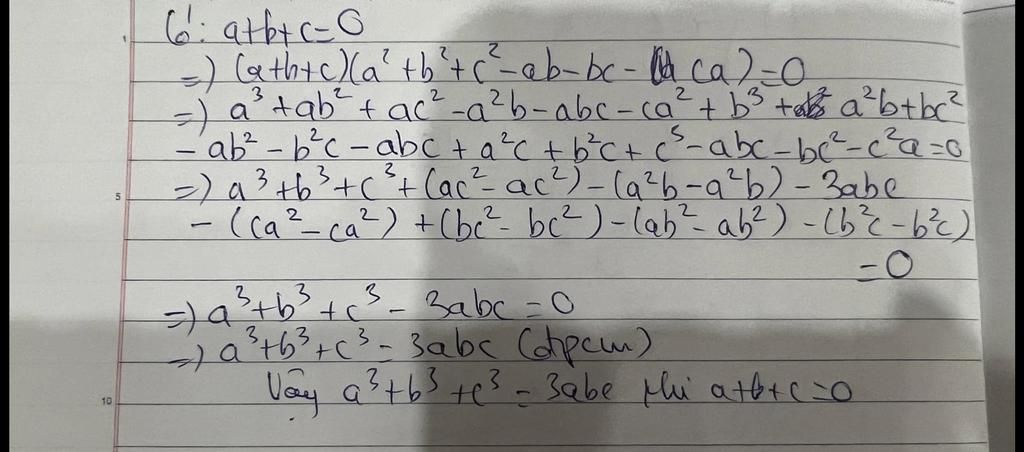 Có: a+b+c=0
=) (a+b+c)(a²+b²+c²-ab-bc-ca)=0
=) a³+ab²+ac²-a²b-abc-ca²+b³+a²b+bc²
-ab²-b²c-abc+a²c+b²c+c³-abc-bc²-c²a=0
5 =) a³+b³+c³+(ac²-ac²)-(a²b-a²b)-3abc
-(ca²-ca²)+(bc²-bc²)-(ab²-ab²)-(b²c-b²c)
=0
=) a³+b³+c³-3abc=0
=) a³+b³+c³=3abc (đpcm)
10 Vậy a³+b³+c³=3abc khi a+b+c=0